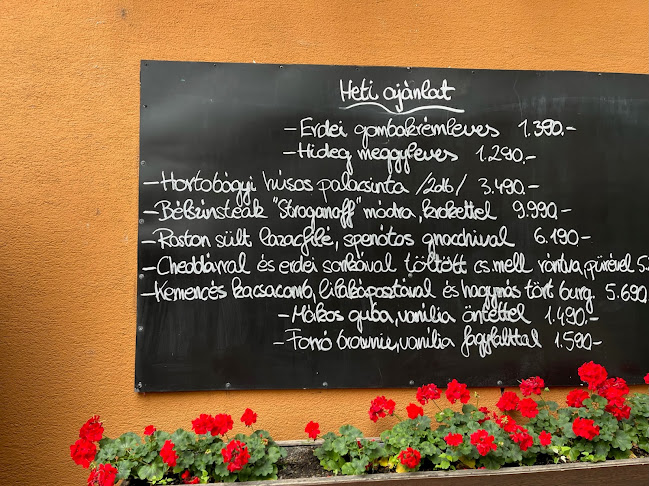 Heti ajánlat
-Erdei gombakrémleves 1.390.-
-Hideg meggyleves 1.290.-
-Hortobágyi húsos palacsinta /2db/ 3.490.-
-Bélszínsteak "Stroganoff" módra, krokettel 9.990.-
-Roston sült lazacfilé, spenótos gnocchival 6.190.-
-Cheddárral és erdei sonkával töltött cs.mell rántva, pürével 5.
-Kemencés kacsacomb, lilakáposztával és hagymás tört burg. 5.690.
-Mákos guba, vanília öntettel 1.490.-
-Forró brownie, vanília fagylalttal 1.590.-